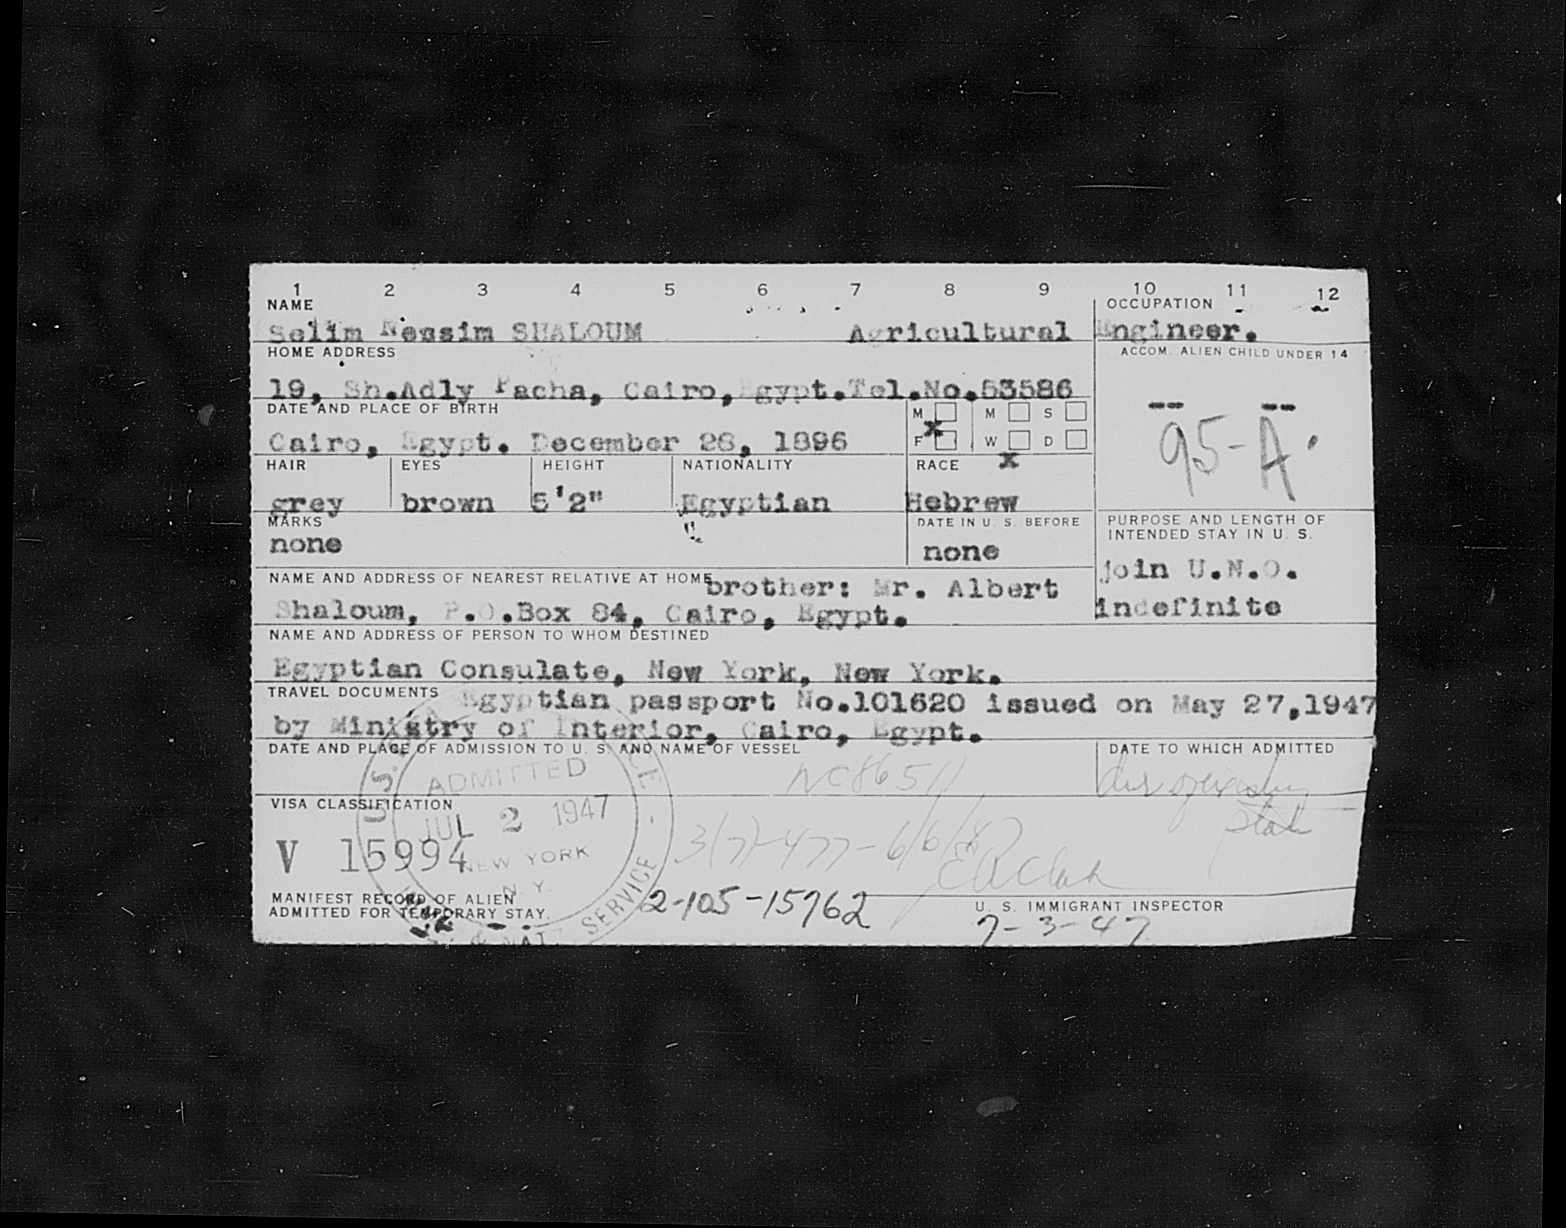 1 2 3 4 5 6 7 8 9 10 11 12
NAME OCCUPATION
Selim Nessim SHALOUM Agricultural Engineer.
HOME ADDRESS ACCOM. ALIEN CHILD UNDER 14
19, Sh.Adly Pacha, Cairo, Egypt.Tel.No.53586
DATE AND PLACE OF BIRTH M M S
-- --
Cairo, Egypt. December 28, 1896 x F W D
95-A.
HAIR EYES HEIGHT NATIONALITY RACE x
grey brown 5'2" Egyptian Hebrew
MARKS DATE IN U. S. BEFORE PURPOSE AND LENGTH OF
INTENDED STAY IN U. S.
none none
join U.N.O.
NAME AND ADDRESS OF NEAREST RELATIVE AT HOME brother: Mr. Albert
Shaloum, P.O.Box 84, Cairo, Egypt. indefinite
NAME AND ADDRESS OF PERSON TO WHOM DESTINED
Egyptian Consulate, New York, New York.
TRAVEL DOCUMENTS Egyptian passport No.101620 issued on May 27,1947
by Ministry of Interior, Cairo, Egypt.
DATE AND PLACE OF ADMISSION TO U. S. AND NAME OF VESSEL DATE TO WHICH ADMITTED
ADMITTED
NC86511
VISA CLASSIFICATION
JUL 2 1947
V 15994
NEW YORK
N. Y.
3(7)-477-6/6/47
MANIFEST RECORD OF ALIEN
ADMITTED FOR TEMPORARY STAY.
U. S. & NAT. SERVICE
2-105-15762
U. S. IMMIGRANT INSPECTOR
7-3-47